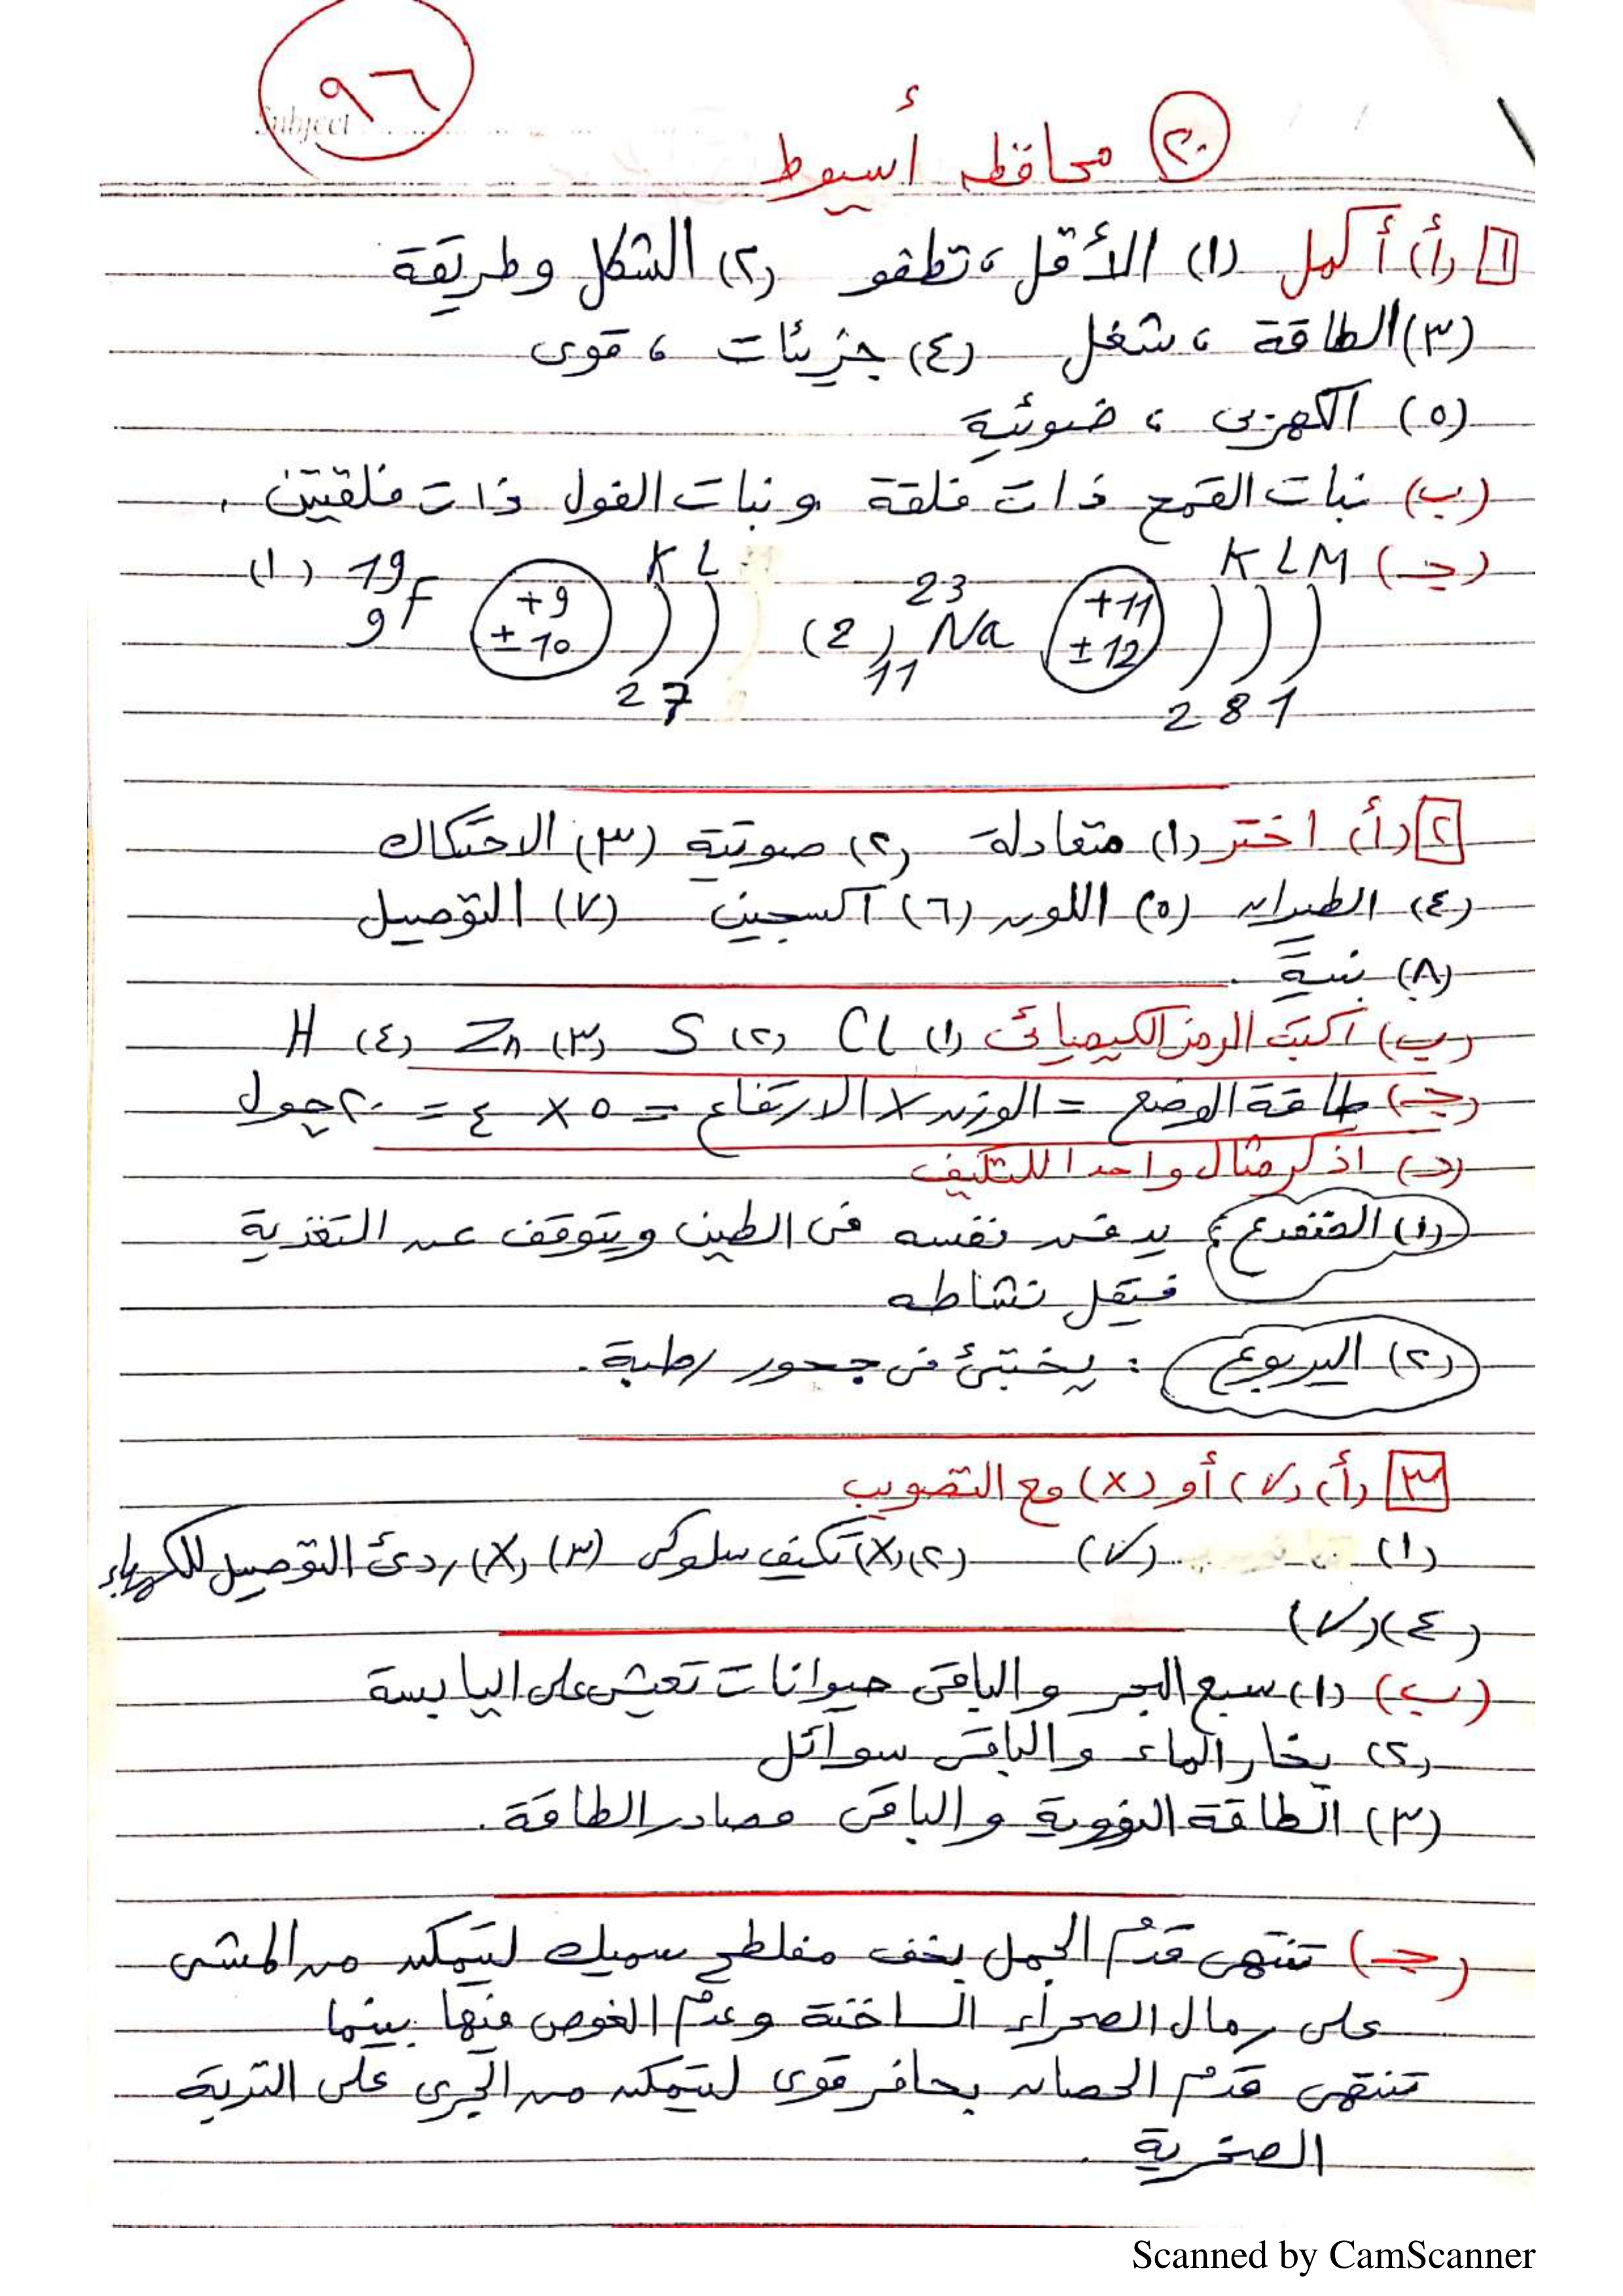 ٩٦
Subject
٢٠ محافظه أسيوط
١ (أ) أكمل (١) الأقل ، تطفو (٢) الشكل وطريقة
(٣) الطاقة ، شغل (٤) جزيئات ، قوى
(٥) الكهربى ، ضوئية
(ب) نبات القمح ذات فلقة ونبات الفول ذات فلقتين .
(جـ) K L M K L (١) 19
9 F +9 ± 10 (2) 23 Na 11 +11 ± 12
2 7 2 8 1
٢ (أ) اختر (١) متعادلة (٢) صوتية (٣) الاحتكاك
(٤) الطيران (٥) اللون (٦) آكسجين (٧) التوصيل
(٨) نسبة .
(ب) آكتب الرمز الكيميائى (١) Cl (٢) S (٣) Zn (٤) H
(جـ) طاقة الوضع = الوزن × الارتفاع = ٥ × ٤ = ٢٠ جول
(د) اذكر مثال واحدا للتكيف
(١) الضفدع : يدفن نفسه فى الطين ويتوقف عن التغذية
فيقل نشاطه
(٢) اليربوع : يختبئ فى جحور رطبة .
٣ (أ) (✓) أو (×) مع التصويب
(١) (✓) (٢) (×) تكيف سلوكى (٣) (×) ردئ التوصيل للكهرباء
(٤) (✓)
(ب) (١) سبع البحر والباقى حيوانات تعيش على اليابسة
(٢) بخار الماء والباقى سوائل
(٣) الطاقة النووية والباقى مصادر الطاقة .
(جـ) تنتهى قدم الجمل بخف مفلطح سميك لتتمكن من المشى
على رمال الصحراء الساخنة وعدم الغوص فيها بينما
تنتهى قدم الحصان بحافر قوى لتتمكن من الجرى على التربة
الصخرية .
Scanned by CamScanner